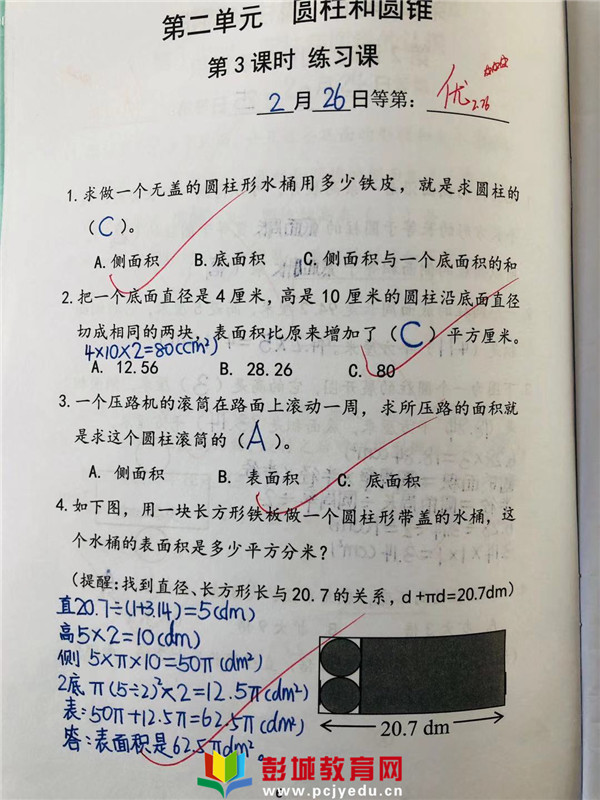 第二单元 圆柱和圆锥
第3课时 练习课
2月26日等第：优
2.26
1. 求做一个无盖的圆柱形水桶用多少铁皮，就是求圆柱的
（C）。
A. 侧面积 B. 底面积 C. 侧面积与一个底面积的和
2. 把一个底面直径是4厘米，高是10厘米的圆柱沿底面直径
切成相同的两块，表面积比原来增加了（C）平方厘米。
4×10×2=80(cm²)
A. 12.56 B. 28.26 C. 80
3. 一个压路机的滚筒在路面上滚动一周，求所压路的面积就
是求这个圆柱滚筒的（A）。
A. 侧面积 B. 表面积 C. 底面积
4. 如下图，用一块长方形铁板做一个圆柱形带盖的水桶，这
个水桶的表面积是多少平方分米？
（提醒：找到直径、长方形长与20.7的关系，d+πd=20.7dm）
直20.7÷(1+3.14)=5(dm)
高5×2=10(dm)
侧 5×π×10=50π(dm²)
2底 π(5÷2)²×2=12.5π(dm²)
表：50π+12.5π=62.5π(dm²)
答：表面积是62.5πdm²。
20.7 dm
彭城教育网
www.pcjyedu.cn